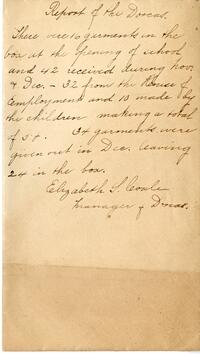 Report of the Dorcas.
There were 16 garments in the
box at the opening of school
and 42 received during Nov.
& Dec. - 32 from the House of
Employment and 10 made by
the children making a total
of 58. 34 garments were
given out in Dec. leaving
24 in the box.
Elizabeth S. Coale
Manager of Dorcas.